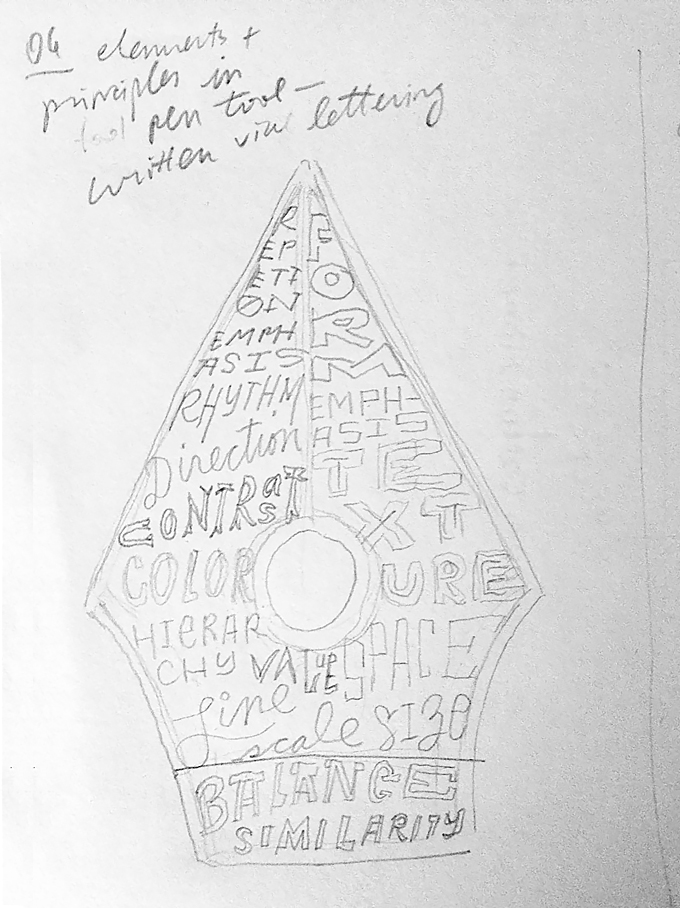 06 elements +
principles in
tool pen tool —
written via lettering
R
EP
ETI
ON
EMPH
ASIS
RHYTHM
Direction
CONTRAST
COLOR
HIERAR
CHY
VALUE
Line
scale
FORM
EMPH-
ASIS
TE
XT
URE
SPACE
SIZE
BALANCE
SIMILARITY